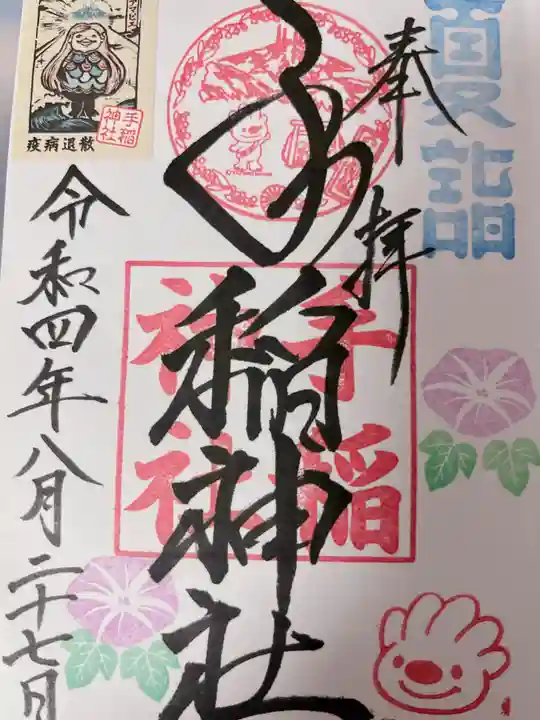 夏詣
奉拝
手稲神社
手稲
神社
アマビエ
手稲
神社
疫病退散
令和四年八月二十七日